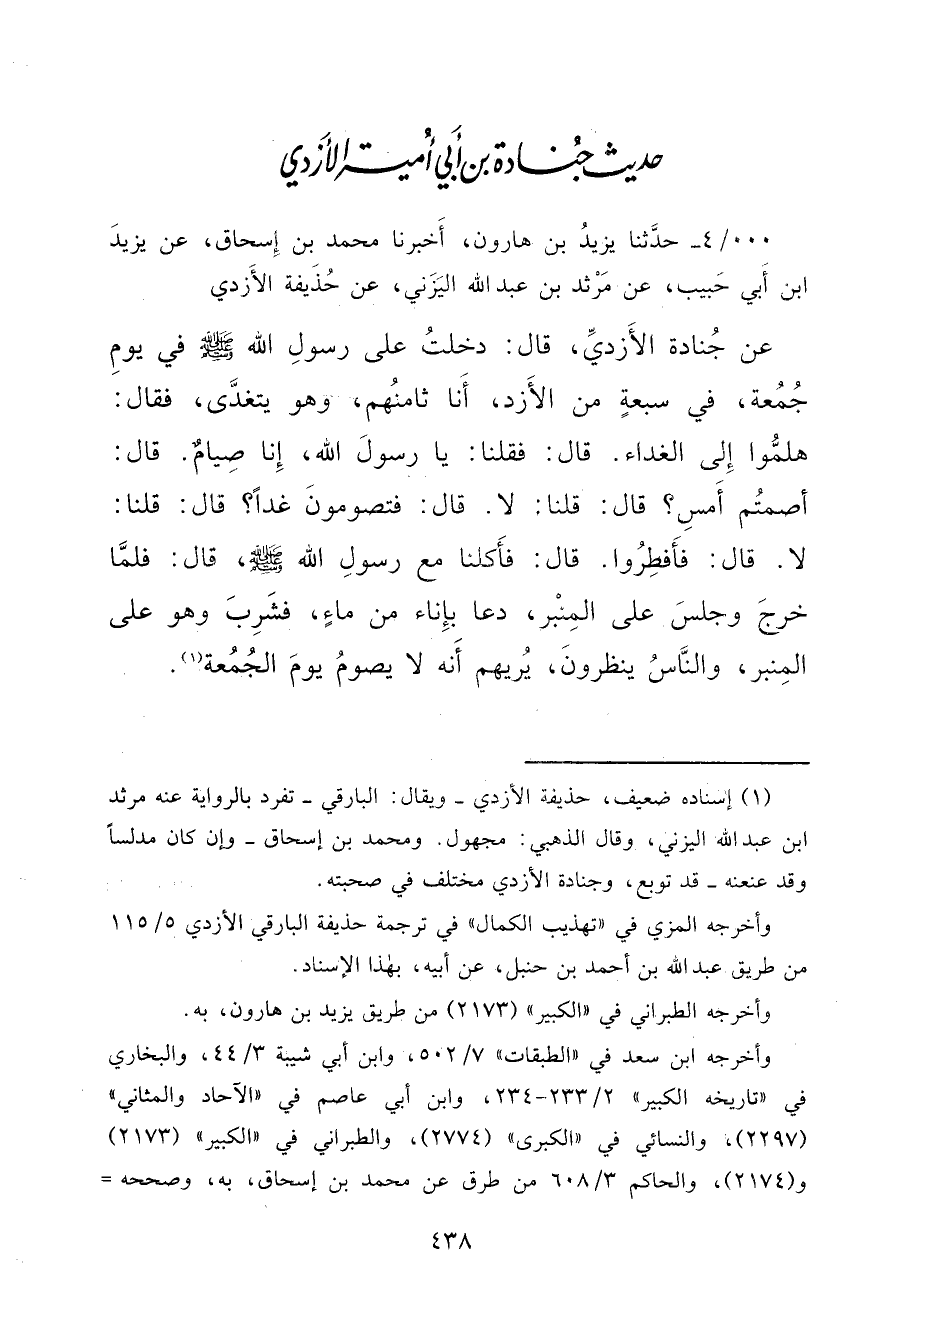 حديث جُنادة بن أَبي أُمية الأَزدي
٤/٠٠٠ـ حدَّثنا يزيدُ بن هارون، أَخبرنا محمد بن إِسحاق، عن يزيدَ
ابن أَبي حَبيب، عن مَرْثد بن عبد الله اليَزَني، عن حُذَيفة الأَزدي
عن جُنادة الأَزديِّ، قال: دخلتُ على رسولِ الله ﷺ في يومِ
جُمُعة، في سبعةٍ من الأَزد، أَنا ثامنُهم، وهو يتغدَّى، فقال:
هلمُّوا إِلى الغداء. قال: فقلنا: يا رسولَ الله، إِنا صِيامٌ. قال:
أَصمتُم أَمسِ؟ قال: قلنا: لا. قال: فتصومونَ غداً؟ قال: قلنا:
لا. قال: فأَفطِرُوا. قال: فأَكلنا مع رسولِ الله ﷺ، قال: فلمَّا
خرجَ وجلسَ على المِنْبر، دعا بإِناء من ماءٍ، فشَرِبَ وهو على
المِنبر، والنَّاسُ ينظرونَ، يُريهم أَنه لا يصومُ يومَ الجُمُعة(١).
(١) إسناده ضعيف، حذيفة الأزدي ـ ويقال: البارقي ـ تفرد بالرواية عنه مرثد
ابن عبد الله اليزني، وقال الذهبي: مجهول. ومحمد بن إسحاق ـ وإن كان مدلساً
وقد عنعنه ـ قد توبع، وجنادة الأزدي مختلف في صحبته.
وأخرجه المزي في «تهذيب الكمال» في ترجمة حذيفة البارقي الأزدي ١١٥/٥
من طريق عبد الله بن أحمد بن حنبل، عن أبيه، بهٰذا الإسناد.
وأخرجه الطبراني في «الكبير» (٢١٧٣) من طريق يزيد بن هارون، به.
وأخرجه ابن سعد في «الطبقات» ٥٠٢/٧، وابن أبي شيبة ٤٤/٣، والبخاري
في «تاريخه الكبير» ٢٣٣/٢-٢٣٤، وابن أبي عاصم في «الآحاد والمثاني»
(٢٢٩٧)، والنسائي في «الكبرى» (٢٧٧٤)، والطبراني في «الكبير» (٢١٧٣)
و(٢١٧٤)، والحاكم ٦٠٨/٣ من طرق عن محمد بن إسحاق، به، وصححه =
٤٣٨